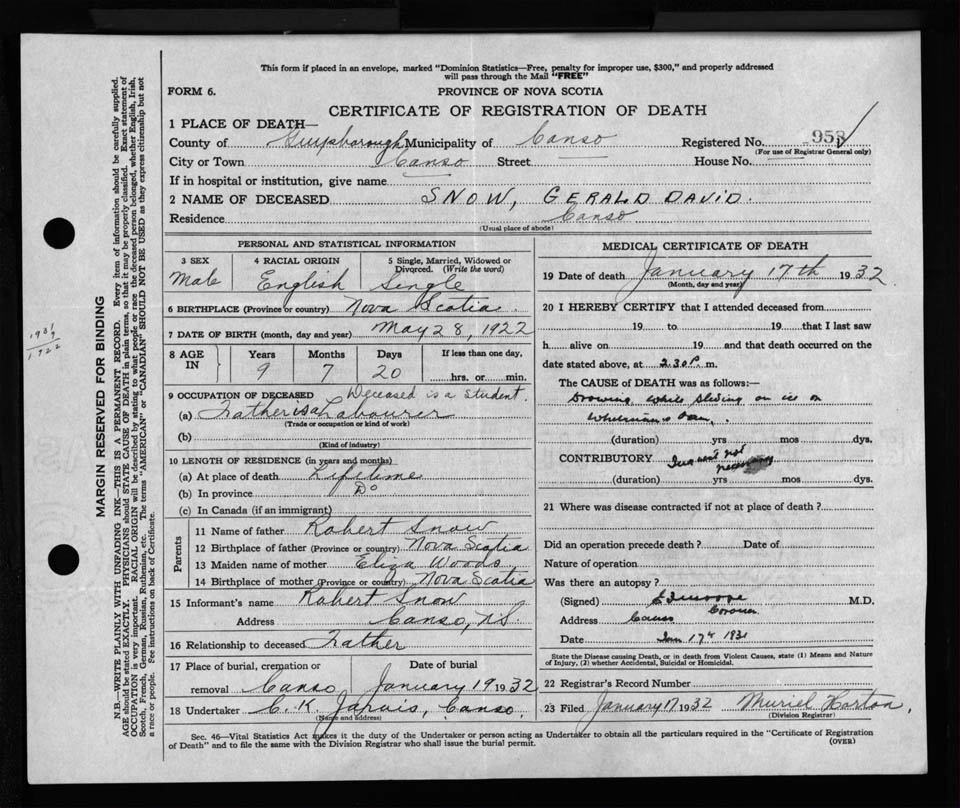 This form if placed in an envelope, marked "Dominion Statistics—Free, penalty for improper use, $300," and properly addressed
will pass through the Mail "FREE"
FORM 6.
PROVINCE OF NOVA SCOTIA
CERTIFICATE OF REGISTRATION OF DEATH
1 PLACE OF DEATH—
County of Guysborough Municipality of Canso Registered No. 953
(For use of Registrar General only)
City or Town Canso Street House No.
If in hospital or institution, give name
2 NAME OF DECEASED SNOW, GERALD DAVID.
Residence Canso
(Usual place of abode)
PERSONAL AND STATISTICAL INFORMATION
3 SEX 4 RACIAL ORIGIN 5 Single, Married, Widowed or
Divorced. (Write the word)
Male English Single
6 BIRTHPLACE (Province or country) Nova Scotia
7 DATE OF BIRTH (month, day and year) May 28, 1922
8 AGE IN Years Months Days If less than one day,
9 7 20 hrs. or min.
9 OCCUPATION OF DECEASED Deceased is a student.
(a) Father is a Labourer
(Trade or occupation or kind of work)
(b)
(Kind of industry)
10 LENGTH OF RESIDENCE (in years and months)
(a) At place of death Lifetime
(b) In province Do
(c) In Canada (if an immigrant)
Parents
11 Name of father Robert Snow
12 Birthplace of father (Province or country) Nova Scotia
13 Maiden name of mother Eliza Woods
14 Birthplace of mother (Province or country) Nova Scotia
15 Informant's name Robert Snow
Address Canso, N.S.
16 Relationship to deceased Father
17 Place of burial, cremation or Date of burial
removal Canso January 19 1932
18 Undertaker C. K. Jarvis, Canso.
(Name and address)
MEDICAL CERTIFICATE OF DEATH
19 Date of death January 17th 1932
(Month, day and year)
20 I HEREBY CERTIFY that I attended deceased from
19 to 19 that I last saw
h alive on 19 and that death occurred on the
date stated above, at 2.30 P. m.
The CAUSE OF DEATH was as follows:—
Drowing while Sliding on ice on
(duration) yrs mos dys.
CONTRIBUTORY Inquest not
necessary
(duration) yrs mos dys.
21 Where was disease contracted if not at place of death?
Did an operation precede death? Date of
Nature of operation
Was there an autopsy?
(Signed) M.D.
Coroner
Address Canso
Date Jan 17th 193
State the Disease causing Death, or in death from Violent Causes, state (1) Means and Nature
of Injury, (2) whether Accidental, Suicidal or Homicidal.
22 Registrar's Record Number
23 Filed January 17 1932 Muriel Horton,
(Division Registrar)
Sec. 46—Vital Statistics Act makes it the duty of the Undertaker or person acting as Undertaker to obtain all the particulars required in the "Certificate of Registration
of Death" and to file the same with the Division Registrar who shall issue the burial permit.
(OVER)
MARGIN RESERVED FOR BINDING
N.B.—WRITE PLAINLY WITH UNFADING INK—THIS IS A PERMANENT RECORD. Every item of information should be carefully supplied.
AGE should be stated EXACTLY. PHYSICIANS should STATE CAUSE OF DEATH in plain terms, so that it may be properly classified. Exact statement of
OCCUPATION is very important. RACIAL ORIGIN will be described by stating to what people or race the deceased person belonged, whether English, Irish,
Scotch, French, German, Russian, Ruthenian, etc. The terms "AMERICAN" or "CANADIAN" SHOULD NOT BE USED as they express citizenship but not
a race or people. See instructions on back of Certificate.
1922